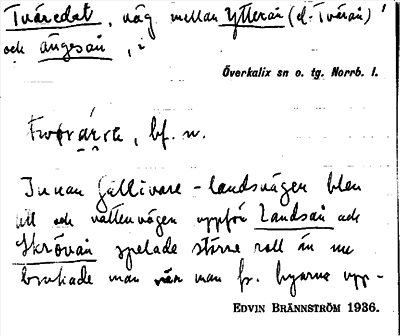 Tväredat, väg mellan Ytterån (el. Tvärån)
och ängesån,
Överkalix sn o. tg. Norrb. l.
bf. n.
Innan Gällivare-landsvägen blev
till och vattenvägen uppför Landsån och
Skröván spelade större roll än nu
brukade man när man fr. byarna upp-
EDVIN BRÄNNSTRÖM 1936.